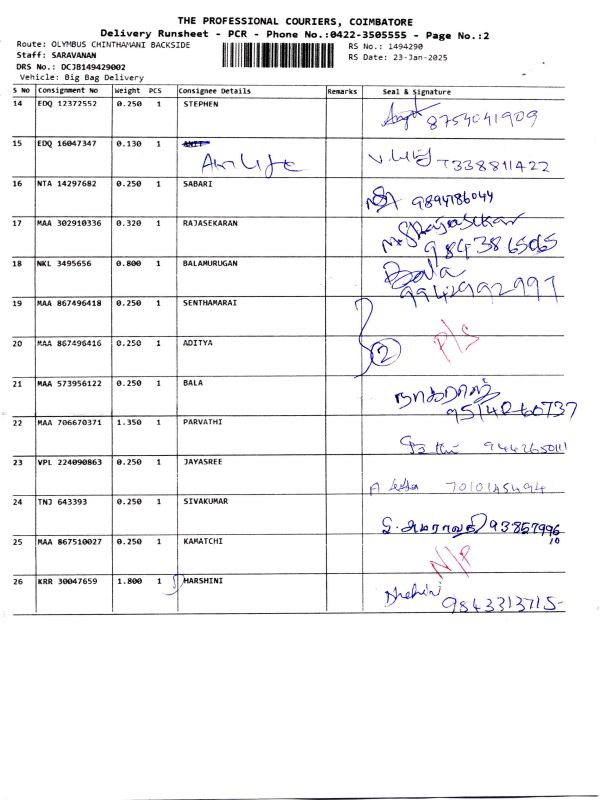 THE PROFESSIONAL COURIERS, COIMBATORE
Delivery Runsheet - PCR - Phone No.:0422-3505555 - Page No.:2
Route: OLYMBUS CHINTHAMANI BACKSIDE RS No.: 1494290
Staff: SARAVANAN RS Date: 23-Jan-2025
DRS No.: DCJB149429002
Vehicle: Big Bag Delivery
S No Consignment No Weight PCS Consignee Details Remarks Seal & Signature
14 EDQ 12372552 0.250 1 STEPHEN
8754041909
15 EDQ 16047347 0.130 1 ANIT
7338811422
16 NTA 14297682 0.250 1 SABARI
9894186044
17 MAA 302910336 0.320 1 RAJASEKARAN
Rajasekar
9843865065
18 NKL 3495656 0.800 1 BALAMURUGAN
Bala
9942992997
19 MAA 867496418 0.250 1 SENTHAMARAI
P/S
20 MAA 867496416 0.250 1 ADITYA
2
21 MAA 573956122 0.250 1 BALA
நாகராஜ்
9514260737
22 MAA 706670371 1.350 1 PARVATHI
9442650111
23 VPL 224090863 0.250 1 JAYASREE
24 TNJ 643393 0.250 1 SIVAKUMAR
9385799610
25 MAA 867510027 0.250 1 KAMATCHI
N/P
26 KRR 30047659 1.800 1 HARSHINI
9843313715